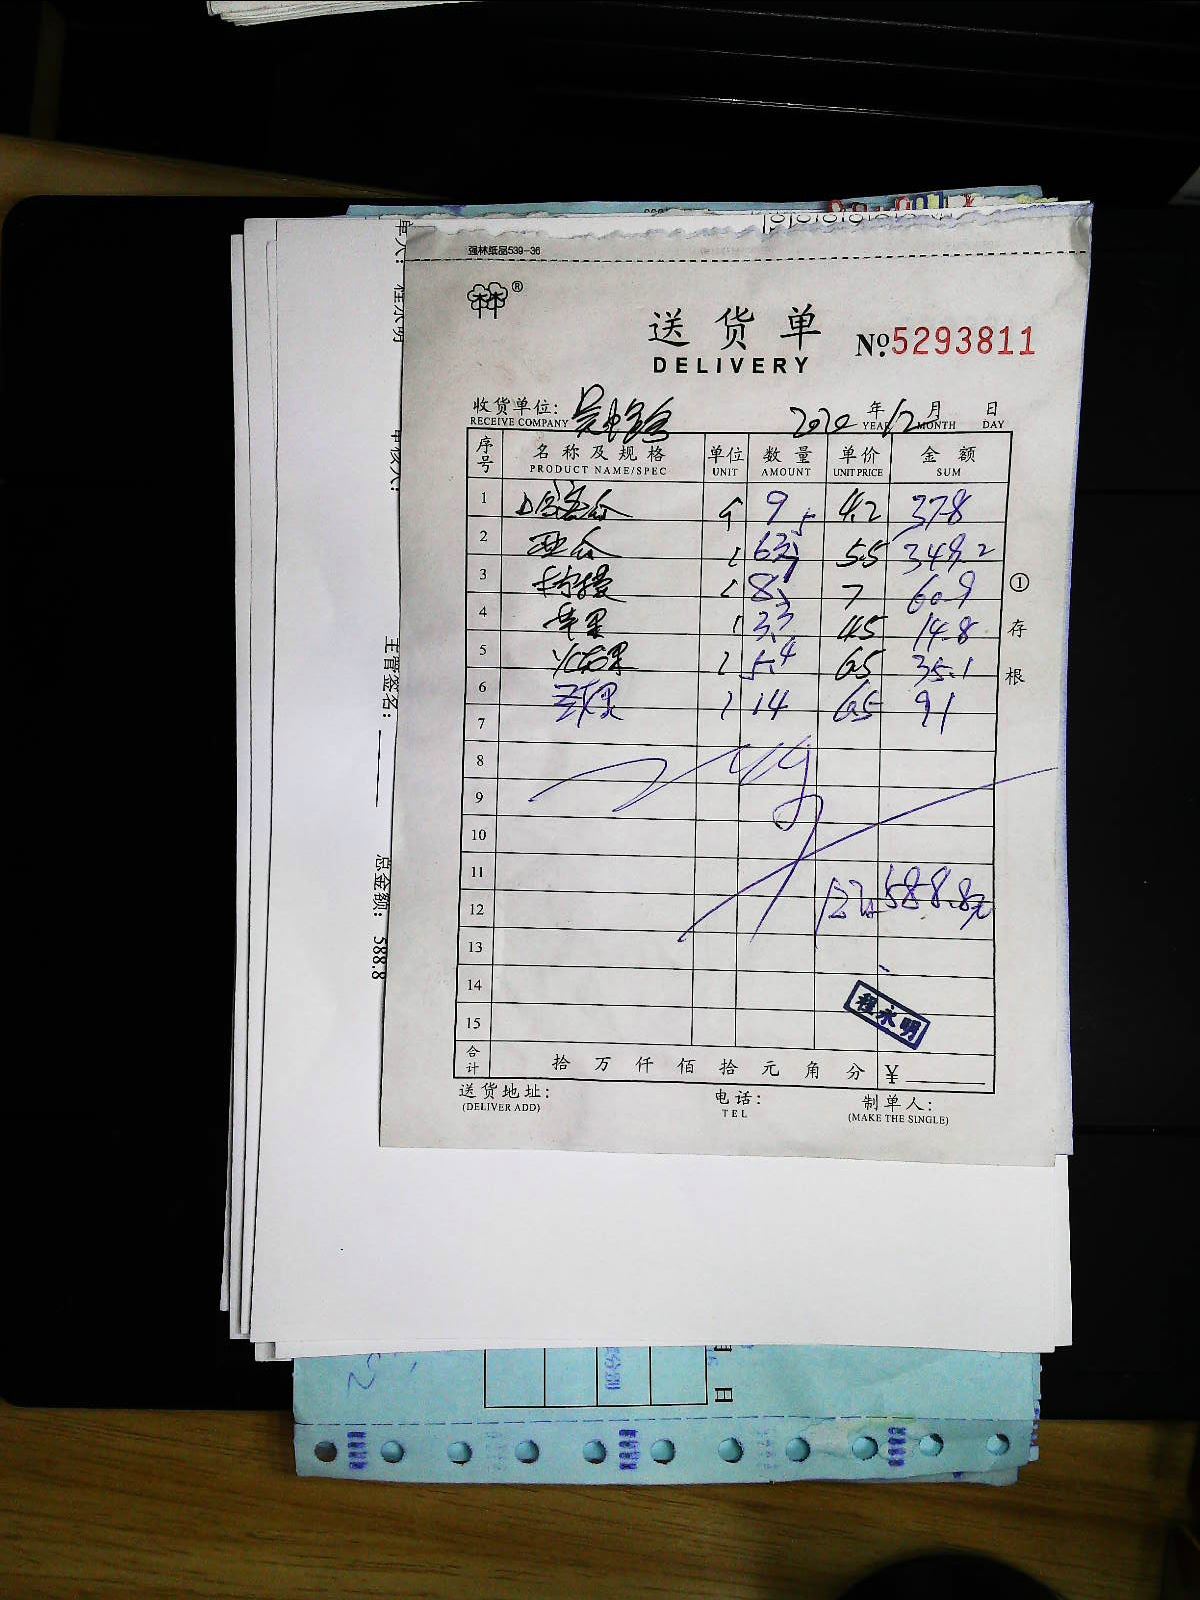 强林纸品539-36
林®
送货单 №5293811
DELIVERY
收货单位: 2020 年 12 月 日
RECEIVE COMPANY YEAR MONTH DAY
序号 名称及规格 单位 数量 单价 金额
PRODUCT NAME/SPEC UNIT AMOUNT UNIT PRICE SUM
1 哈密瓜 个 9 4.2 37.8
2 西瓜 63.5 5.5 349.2
3 柠檬 8.7 7 60.9
4 苹果 3.3 4.5 14.8
5 火龙果 5.4 6.5 35.1
6 14 6.5 91
7
8
9
10
11
12 588.8元
13
14
15
程永明
合计 拾 万 仟 佰 拾 元 角 分 ¥
送货地址: 电话: 制单人:
(DELIVER ADD) TEL (MAKE THE SINGLE)
①存根
单人: 程永明
审核人:
主管签名:
总金额: 588.8
日